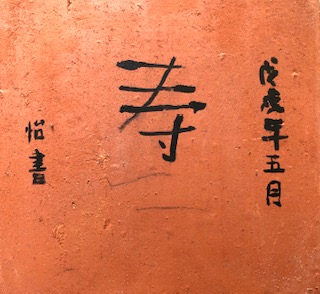 戊虎年五月
寿
怡書